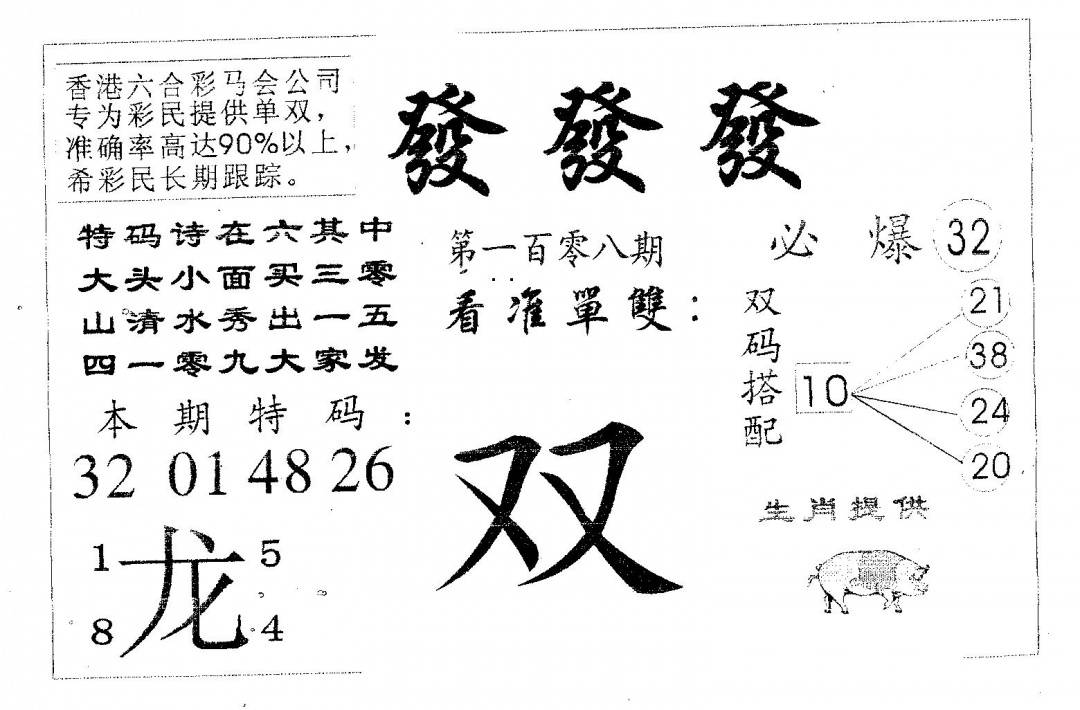 香港六合彩马会公司
专为彩民提供单双，
准确率高达90%以上，
希彩民长期跟踪。
發 發 發
特码诗在六其中
大头小面买三零
山清水秀出一五
四一零九大家发
本期特码：
32 01 48 26
龙
1 5
8 4
第一百零八期
看准單雙：
双
必爆 32
双码搭配
10
21
38
24
20
生肖提供